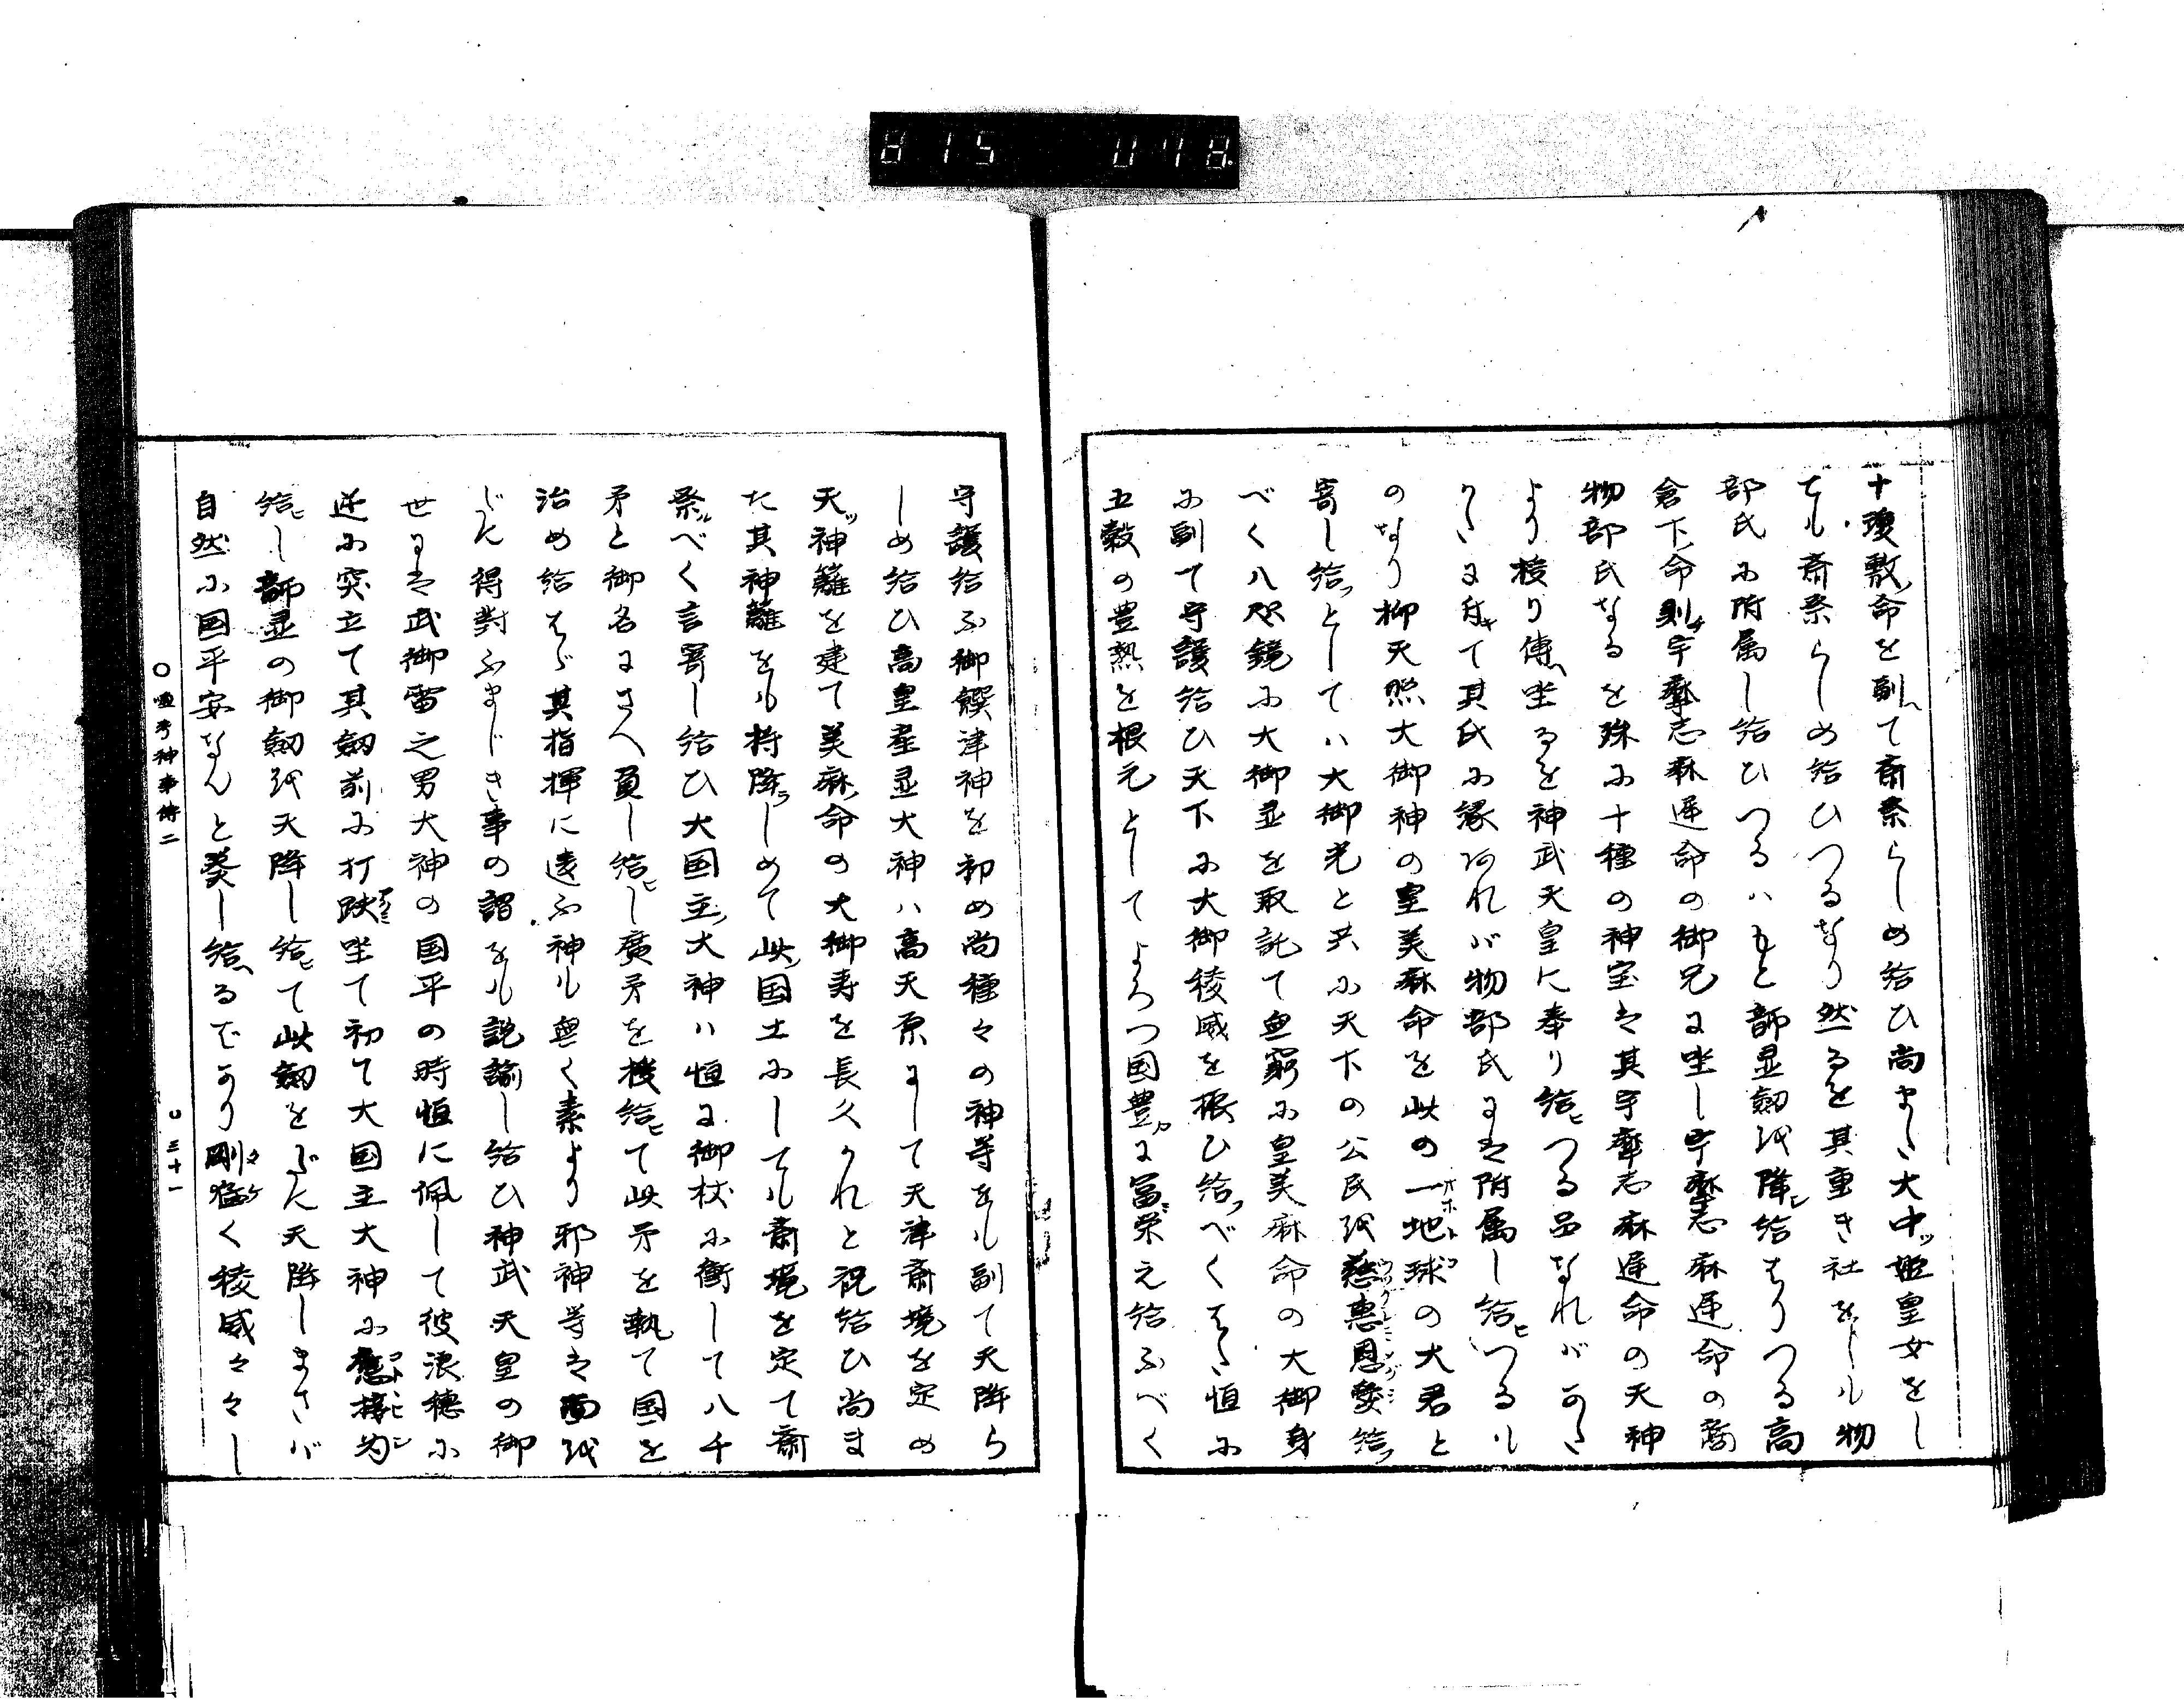 十瓊敷命を副て斎祭らしめ給ひ尚また大中ッ姫皇女をし
ても斎祭らしめ給ひつるなり然るを其重き社をしも物
部氏に附属し給ひつるハもと韴霊劔を降シ給はりつる高
倉下命則チ宇摩志麻遅命の御兄に坐し宇摩志麻遅命の裔
物部氏なるを殊に十種の神宝は其宇摩志麻遅命の天神
より授り傳へ坐るを神武天皇に奉り給ヒつる品なればかた
〴〵に付キて其氏に縁あれば物部氏には附属し給ヒつるも
のなり抑天照大御神の皇美麻命を此の一地球の大君と
寄し給ッとしてハ大御光と共に天下の公民を慈恵恩愛給ッ
べく八咫鏡に大御霊を取託て無窮に皇美麻命の大御身
に副て守護給ひ天下に大御稜威を振ひ給ッべくはた恒に
五穀の豊熟を根元としてよろつ国豊カに冨栄え給ふべく
守護給ふ御饌津神を初め尚種々の神等をも副て天降ら
しめ給ひ高皇産霊大神ハ高天原にして天津斎境を定め
天ッ神籬を建て美麻命の大御寿を長久かれと祝給ひ尚ま
た其神籬をも持降ラしめて此国土にしても斎境を定て斎
祭ルべく言寄し給ひ大国主大神ハ恒に御杖に衝して八千
矛と御名にさへ負し給ヒし廣矛を授給ヒて此矛を執て国を
治め給はゞ其指揮に違ふ神も無く素より邪神等は面を
じん得對ふまじき事の謂をも説諭し給ひ神武天皇の御
世には武御雷之男大神の国平の時恒に佩して彼浪穂に
逆に突立て其劔前に打趺坐て初て大国主大神に應接為
給ヒし韴霊の御劔を天降し給ヒて此劔をだに天降しまさば
自然に国平安なんと葵し給へるでかり剛猛く稜威々々し
〇 神事傳二
三十一